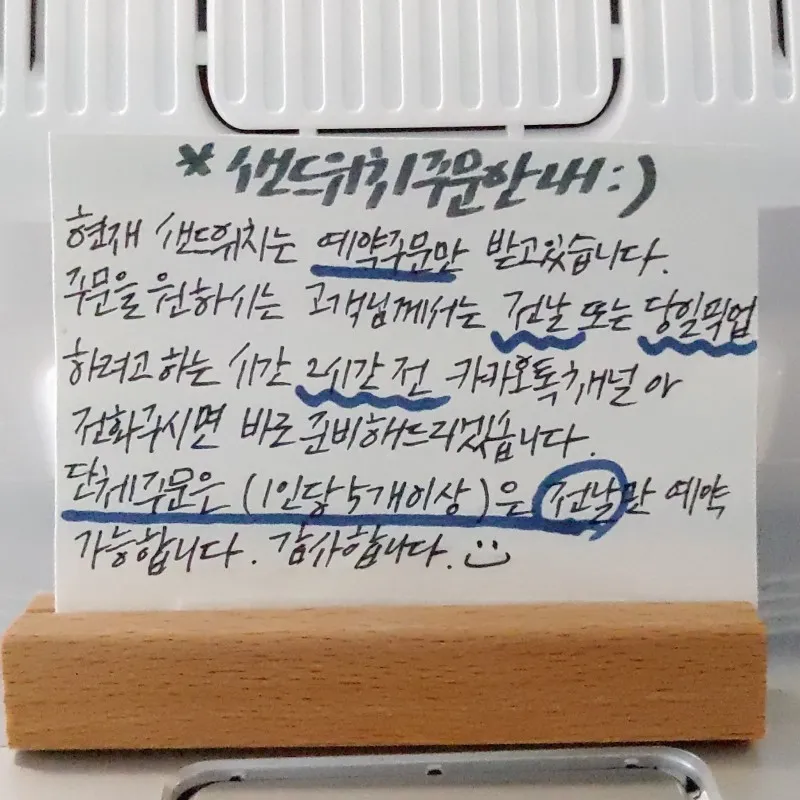 * 샌드위치 주문안내 :)
현재 샌드위치는 예약주문만 받고있습니다.
주문을 원하시는 고객님께서는 전날 또는 당일픽업
하려고 하는 시간 2시간 전 카카오톡채널 아
전화주시면 바로 준비해드리겠습니다.
단체주문은 (1인당 5개이상)은 전날만 예약
가능합니다. 감사합니다.